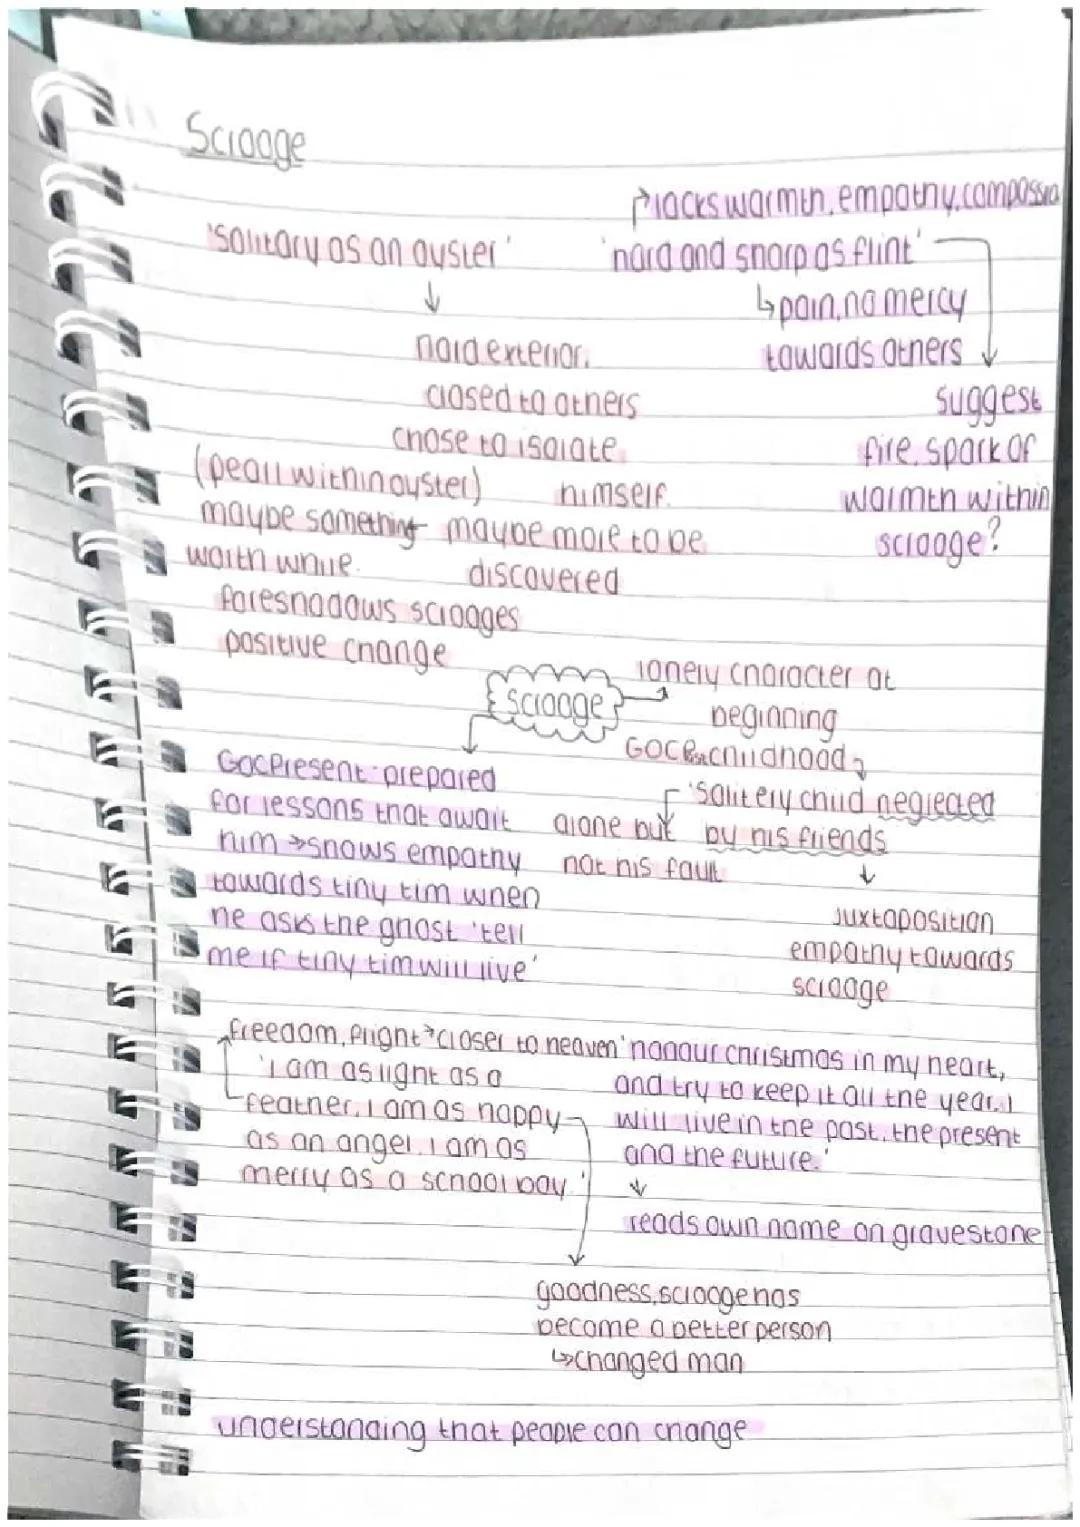 Scrooge
↱lacks warmth, empathy, compassio
'solitary as an oyster'
'hard and sharp as flint'
↓
↳pain, no mercy
towards others ↓
hard exterior.
closed to others
chose to isolate
himself.
suggest
fire, spark of
warmth within
scrooge?
(pearl within oyster)
maybe something
worth while.
maybe more to be
discovered
foreshadows scrooges
positive change
Scrooge
→ lonely character at
beginning
GOCP childhood
'solitery child neglected
by his friends
alone but
not his fault
↓
juxtaposition
empathy towards
scrooge
GOCPresent - prepared
for lessons that await
him → shows empathy
towards tiny tim when
he asks the ghost 'tell
me if tiny tim will live'
freedom, flight → closer to heaven
'I am as light as a
feather, I am as happy
as an angel, I am as
merry as a school boy.'
'honour christmas in my heart,
and try to keep it all the year. I
will live in the past, the present
and the future.'
↓
reads own name on gravestone
goodness, scrooge has
become a better person
↳changed man
understanding that people can change